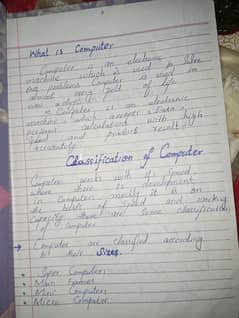 What is Computer
Computer is an electronic
machine which is used to solve
our problems computer is used in
almost every field of life
Computer is an electronic
machine which accepts Data
perform calculations with high
speed and produce result
accurately
Classification of Computer
Computer works with its speed
where there is development
in Computer mostly it is on
the basis of speed and working
capacity there are some classification
of computer
→ Computer are classified according
to their Sizes.
Super Computers
Main Frames
Mini Computers
Micro Computer